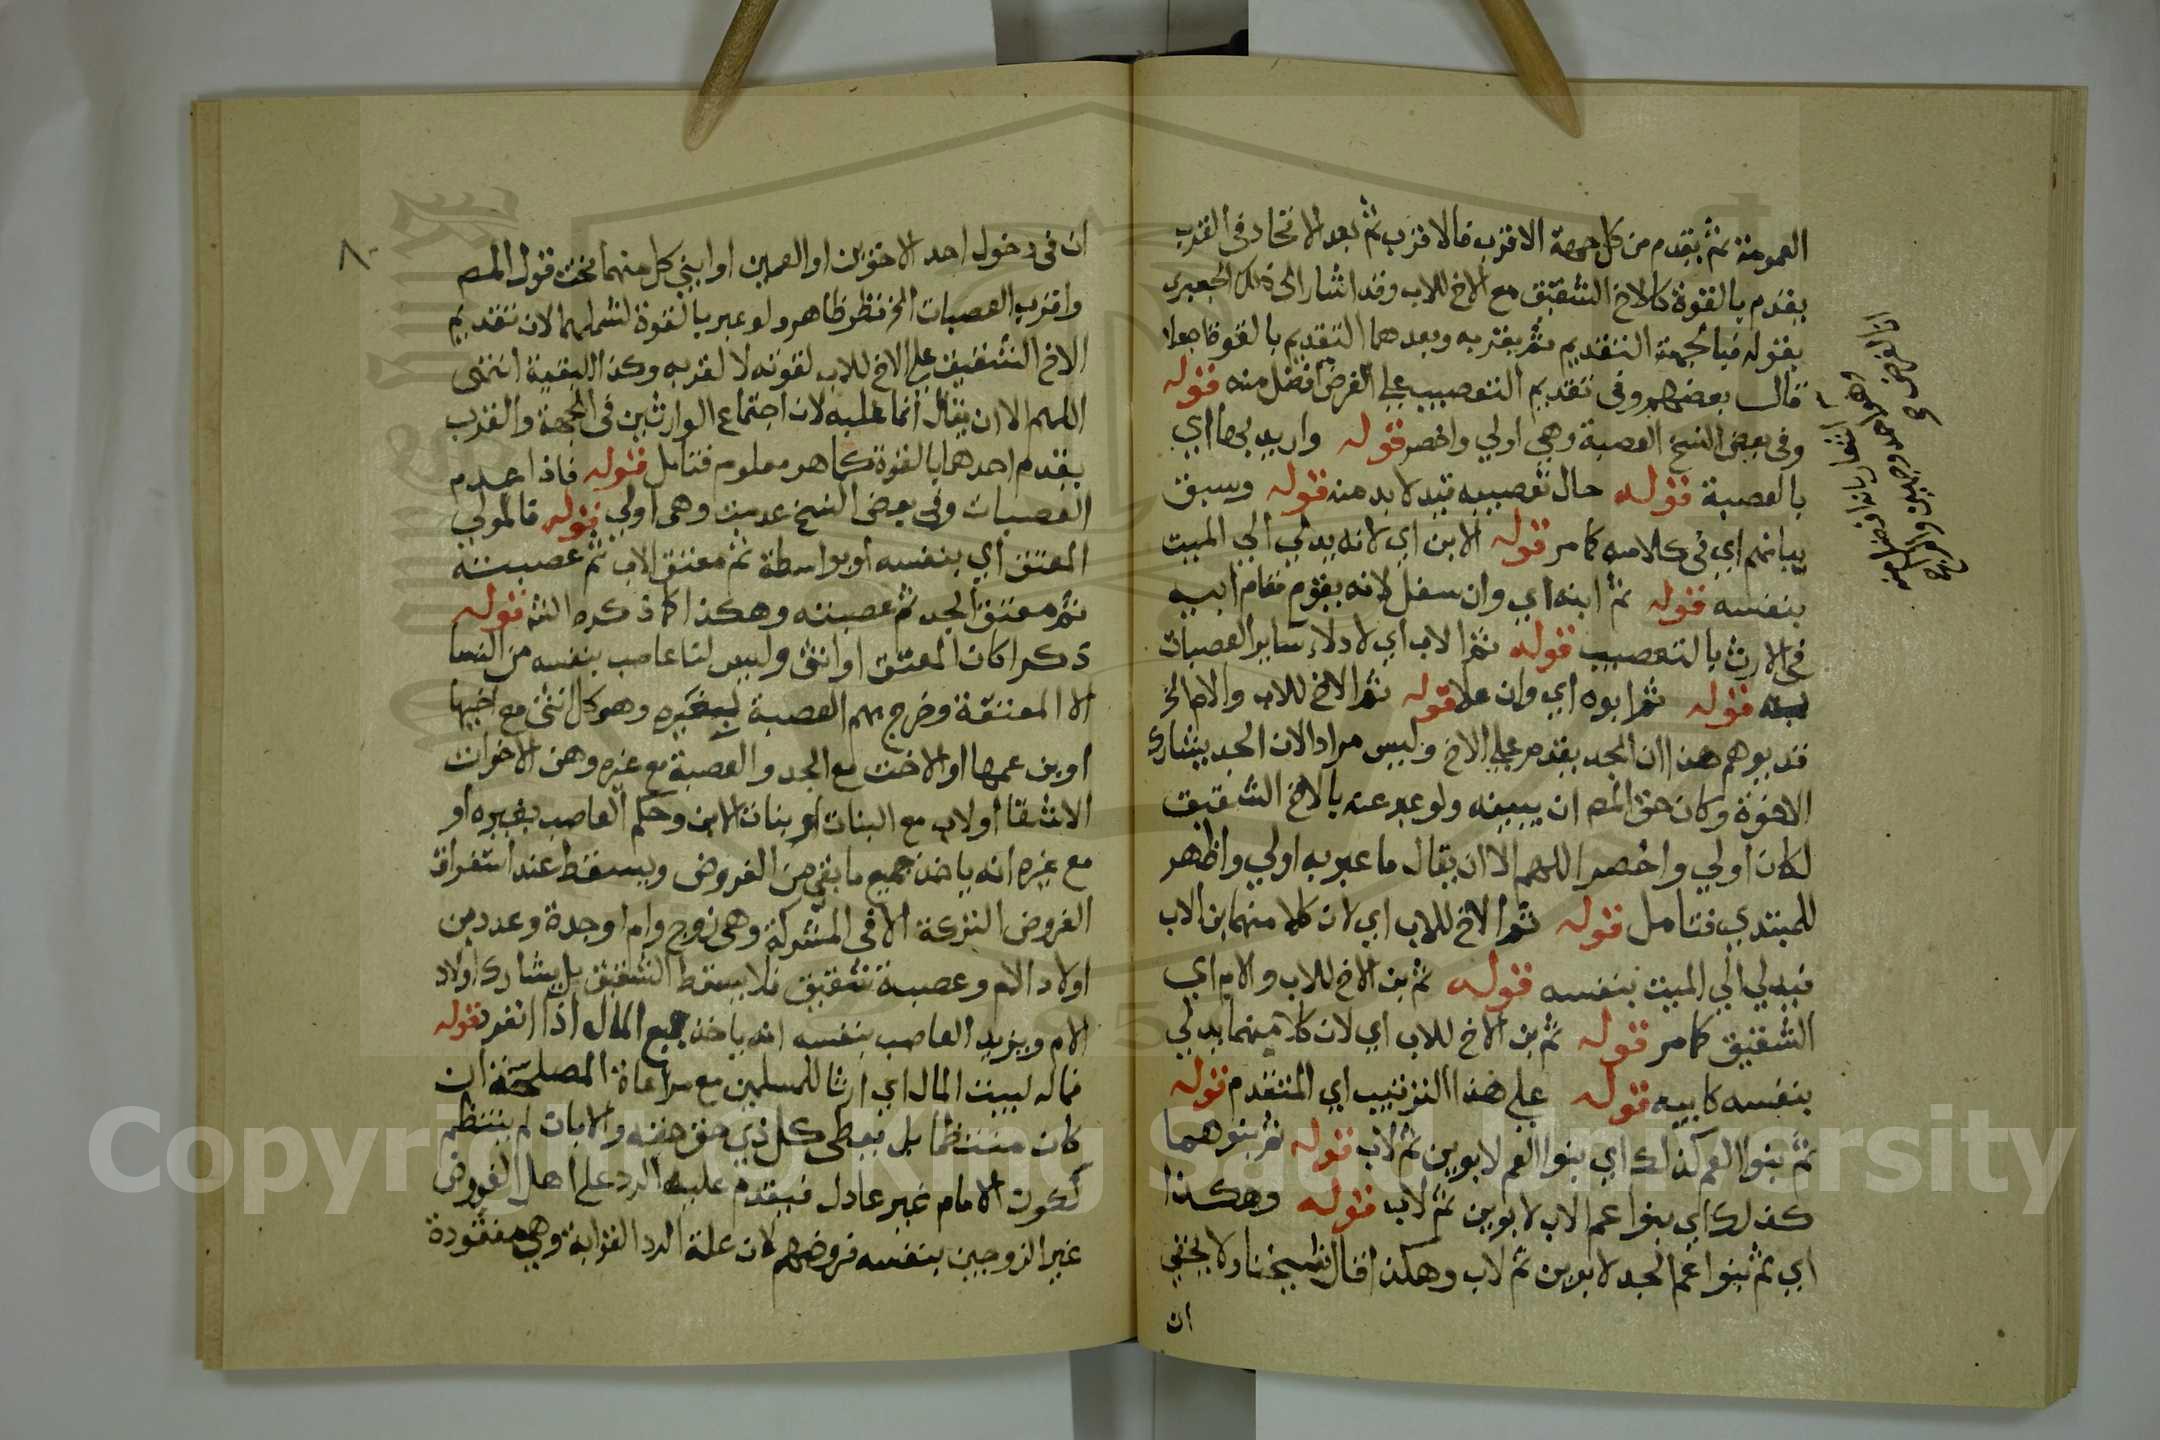 العمومة ثم يقدم من كل جهة الاقرب فالاقرب ثم بعد الاتحاد في القرب
يقدم بالقوة كالاخ الشقيق مع الاخ للاب وقد اشار الى ذلك الجعبري
بقوله فبالجهة التقديم ثم بقربه وبعدهما التقديم بالقوة اجعلا
قال بعضهم وفي تقديم التعصيب علي الفرض افضل منه قوله
وفي بعض النسخ العصبة وهي اولي واخصر قوله واريد بها اي
بالعصبة قوله حال تعصيبه قيد لا بد منه قوله وسبق
بيانهم اي في كلامه كما مر قوله الابن اي لانه يدلي الي الميت
بنفسه قوله ثم ابنه اي وان سفل لانه يقوم مقام ابيه
في الارث بالتعصيب قوله ثم الاب اي لادلاء ساير العصبات
به قوله ثم ابوه اي وان علا قوله ثم الاخ للاب والام الخ
قد يوهم هذا ان الجد يقدم علي الاخ وليس مرادا لان الجد يشارك
الاخوة وكان حق المص ان يبينه ولو عبر عنه بالاخ الشقيق
لكان اولي واخصر اللهم الا ان يقال ما عبر به اولي واظهر
للمبتدي فتامل قوله ثم الاخ للاب اي لان كلا منهما بن الاب
فيدلي الي الميت بنفسه قوله ثم بن الاخ للاب والام اي
الشقيق كما مر قوله ثم بن الاخ للاب اي لان كلا منهما يدلي
بنفسه كابيه قوله علي هذا الترتيب اي المتقدم قوله
ثم بنوا العم كذلك اي بنوا العم لابوين ثم لاب قوله ثم بنوهما
كذلك اي بنوا عم الاب لابوين ثم لاب قوله وهكذا
اي ثم بنوا عم الجد لابوين ثم لاب وهكذا قال شيخنا ولا يخفي
ان
ان في دخول احد الاخوين او العمين او ابني كل منهما تحت قول المص
واقرب العصبات الخ نظر ظاهر ولو عبر بالقوة لشملهما لان تقديم
الاخ الشقيق علي الاخ للاب لقوته لا لقربه وكذا البقية انتهى
اللهم الا ان يقال انما غلبه لان اجتماع الوارثين في الجهة والقرب
يقدم احدهما بالقوة كما هو معلوم فتامل قوله فاذا عدم
العصبات وفي بعض النسخ عدمت وهي اولي قوله فالمولي
المعتق اي بنفسه او بواسطة ثم معتق الاب ثم عصبته
ثم معتق الجد ثم عصبته وهكذا كما ذكره الثم قوله
ذكرا كان المعتق او انثى وليس لنا عاصب بنفسه من النسا
الا المعتقة وخرج بهم العصبة بغيره وهو كل انثى مع اخيها
او بن عمها او الاخت مع الجد والعصبة مع غيره وهن الاخوات
الاشقا او لاب مع البنات او بنات الابن وحكم العاصب بغيره او
مع غيره انه ياخذ جميع ما بقي من الفروض ويسقط عند استغراق
الفروض التركة الا في المشركة وهي زوج وام او جدة وعدد من
اولاد الام وعصبة شقيق فلا يسقط الشقيق بل يشارك اولاد
الام ويزيد العاصب بنفسه انه ياخذ جميع المال اذا انفرد قوله
فماله لبيت المال اي ارثا للمسلمين مع مراعاة المصلحة ان
كان منتظما بل يعطى كل ذي حق حقه والا بان لم ينتظم
لكون الامام غير عادل فيقدم عليه الرد علي اهل الفروض
غير الزوجين بنفسه فروضهم لان علة الرد القرابة وهي مفقودة